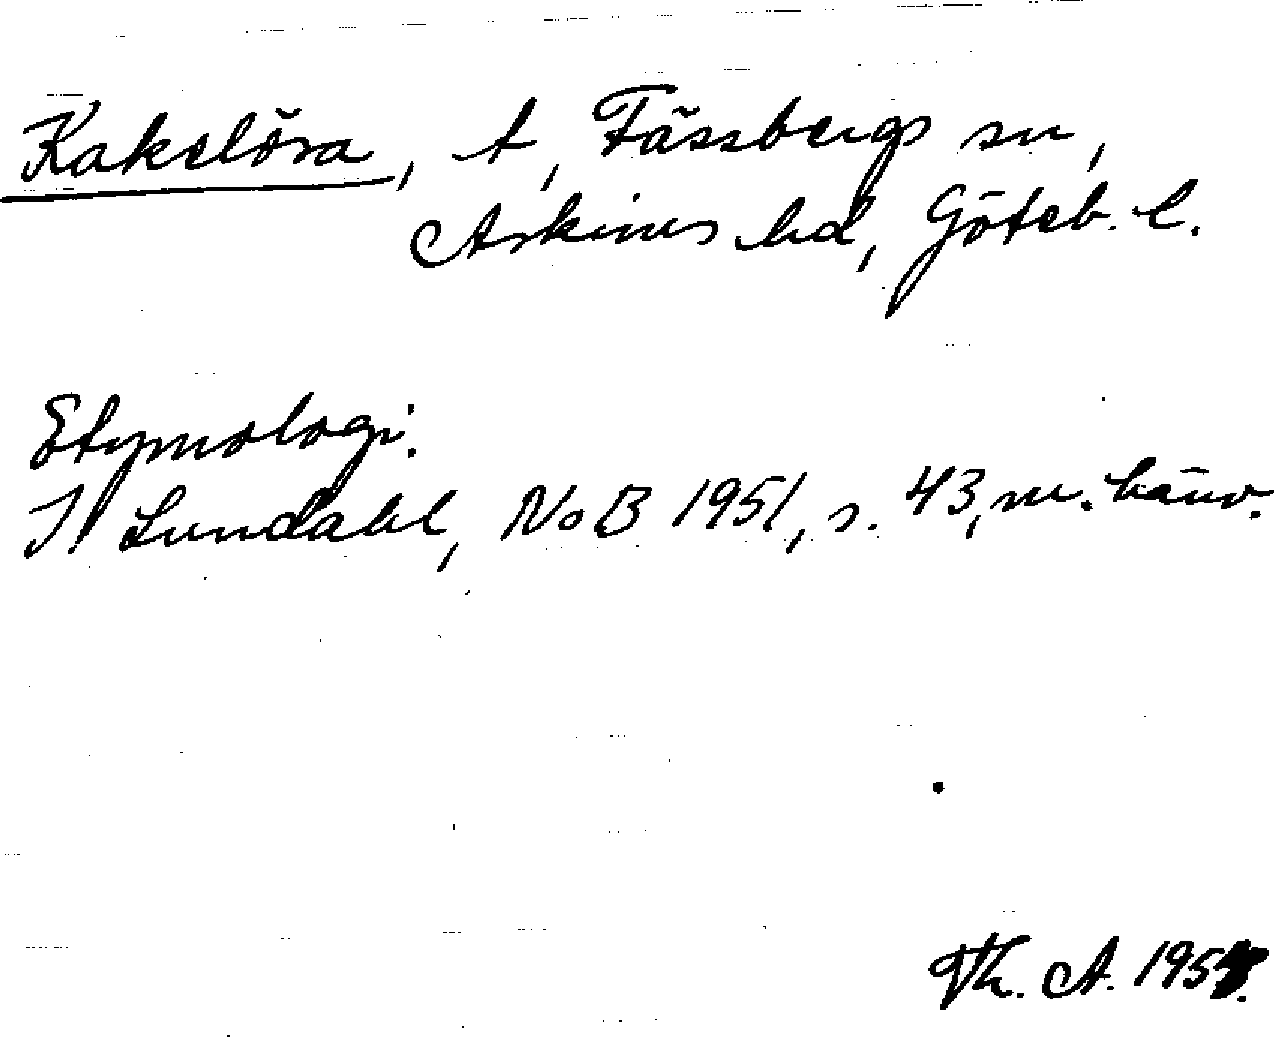 Kakelöra, t, Fässbergs sn,
Askims hd, Göteb. l.
Etymologi:
I Lundahl, NoB 1951, s. 43, m. hänv.
Th. A. 195